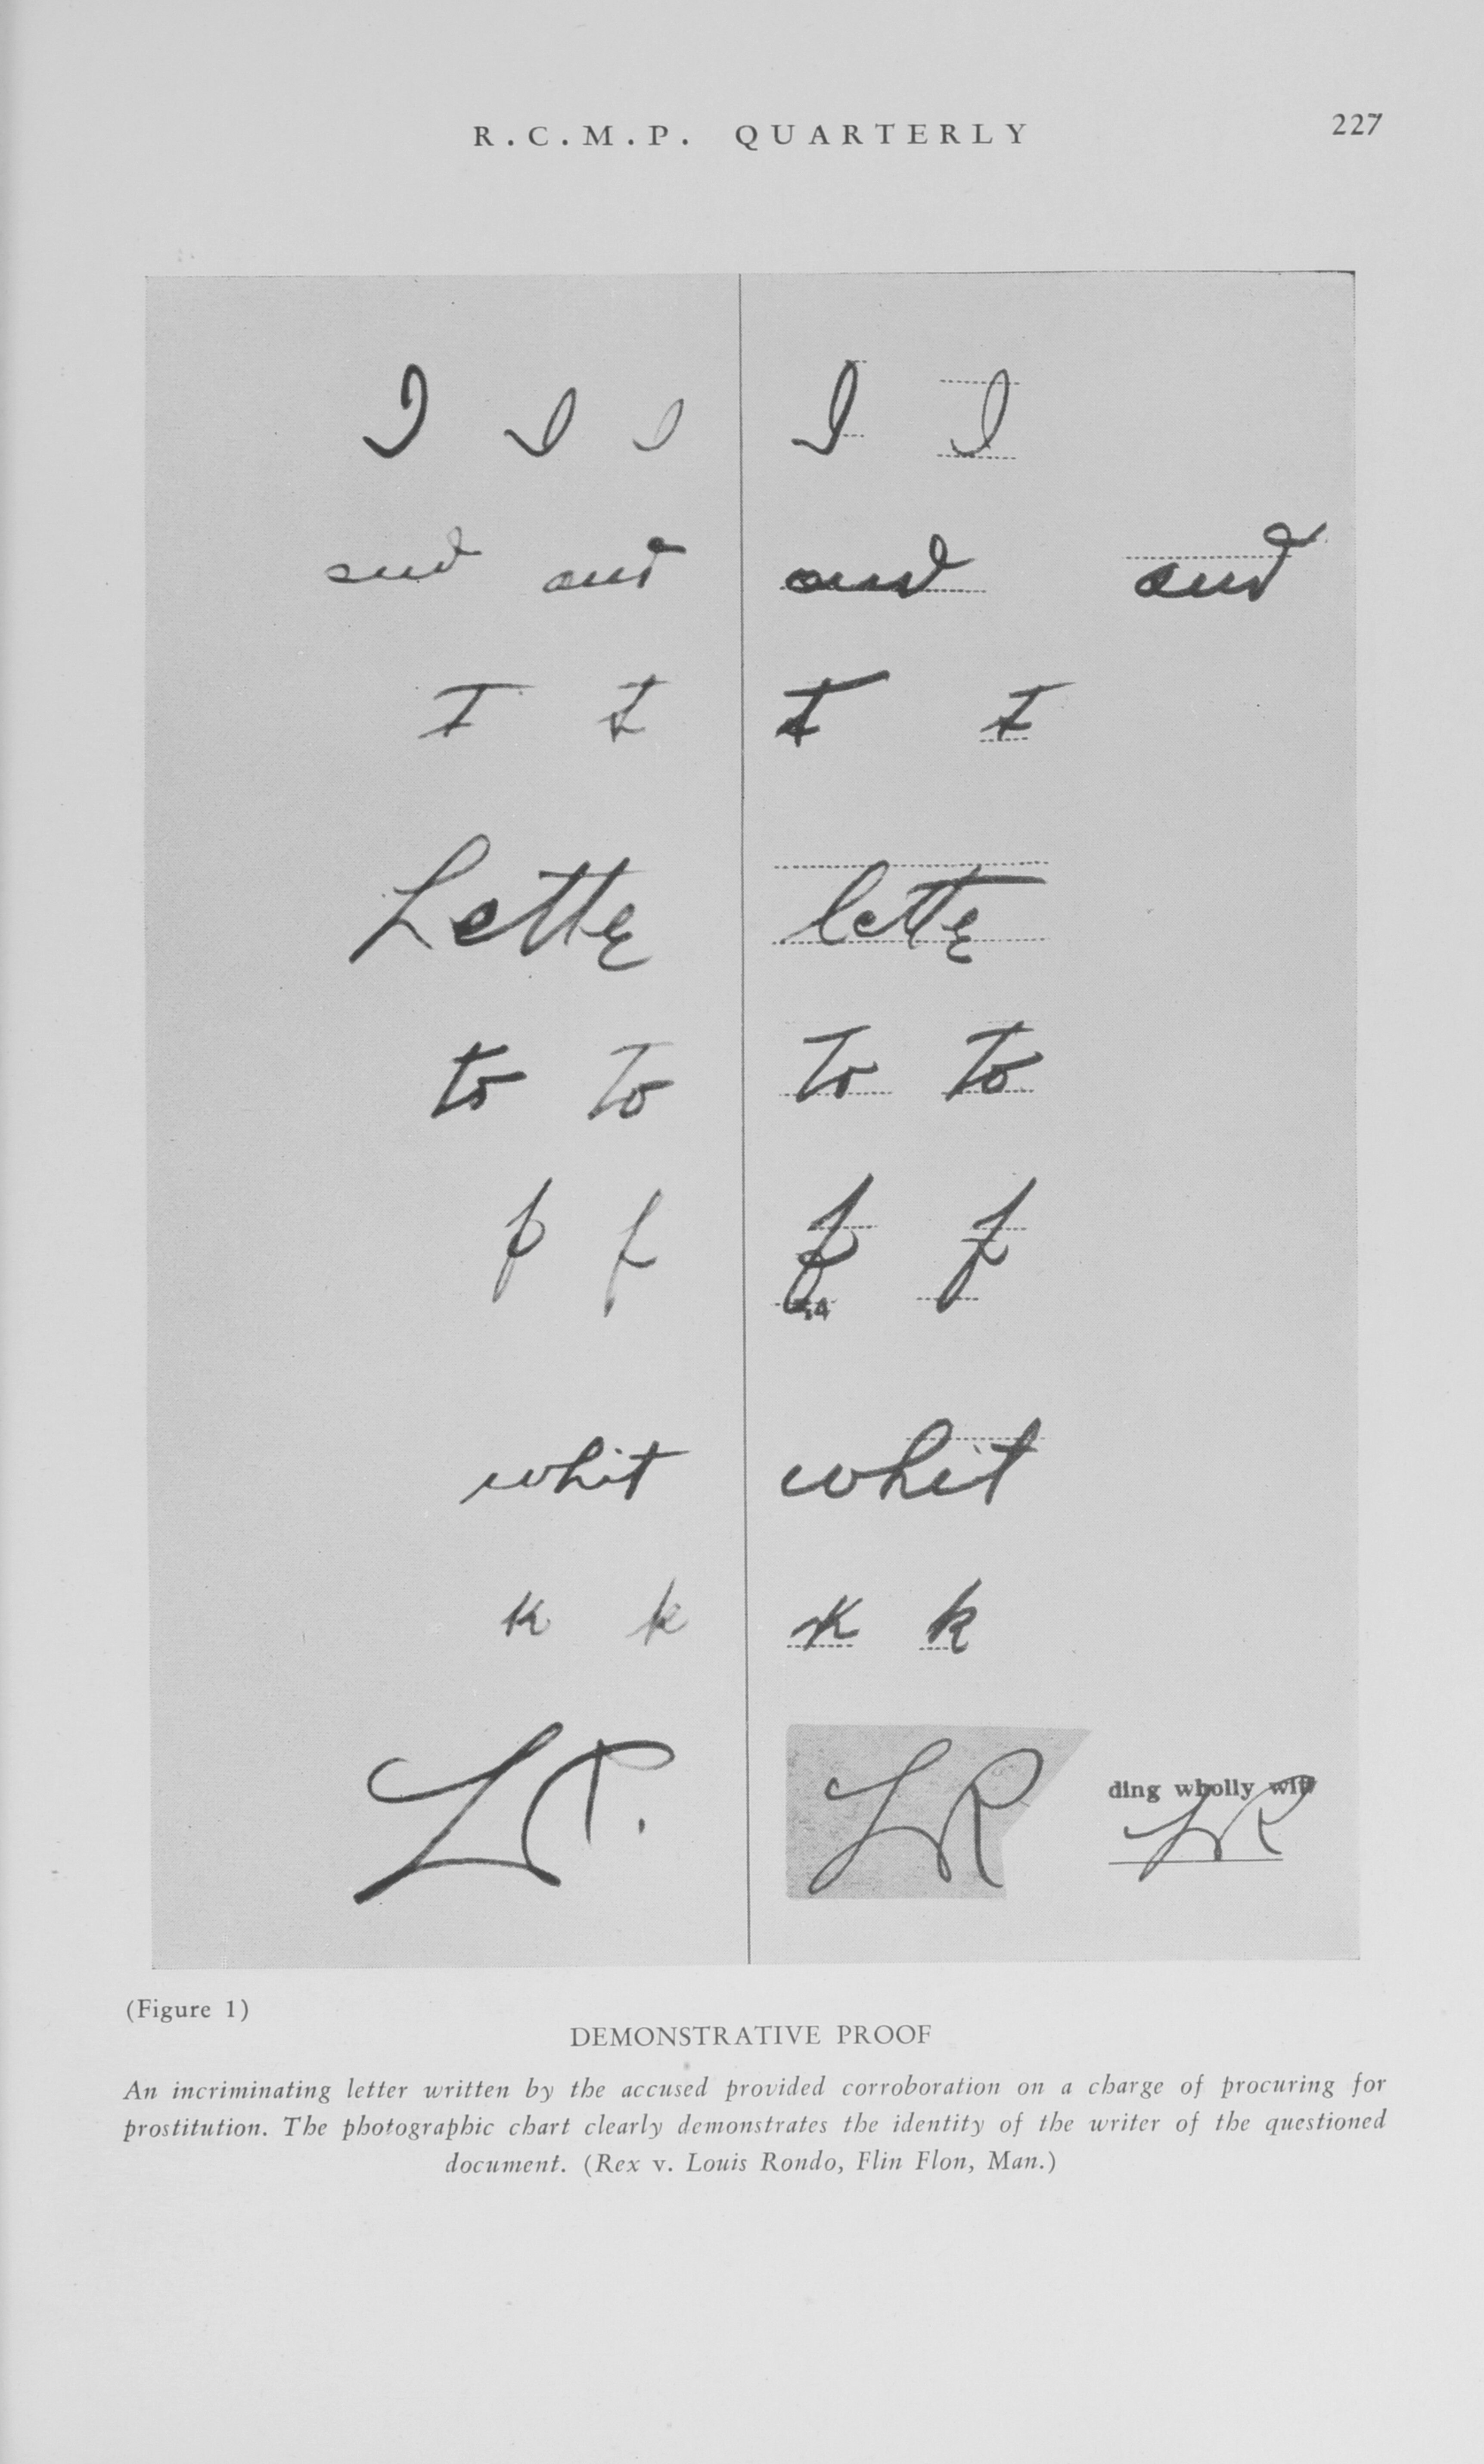 R.C.M.P. QUARTERLY 227
I I I I I
and and and and
I I I I
Lette lette
to to to to
f f f f
whit whit
k k k k
LR. LR ding wholly with LR
(Figure 1)
DEMONSTRATIVE PROOF
An incriminating letter written by the accused provided corroboration on a charge of procuring for
prostitution. The photographic chart clearly demonstrates the identity of the writer of the questioned
document. (Rex v. Louis Rondo, Flin Flon, Man.)